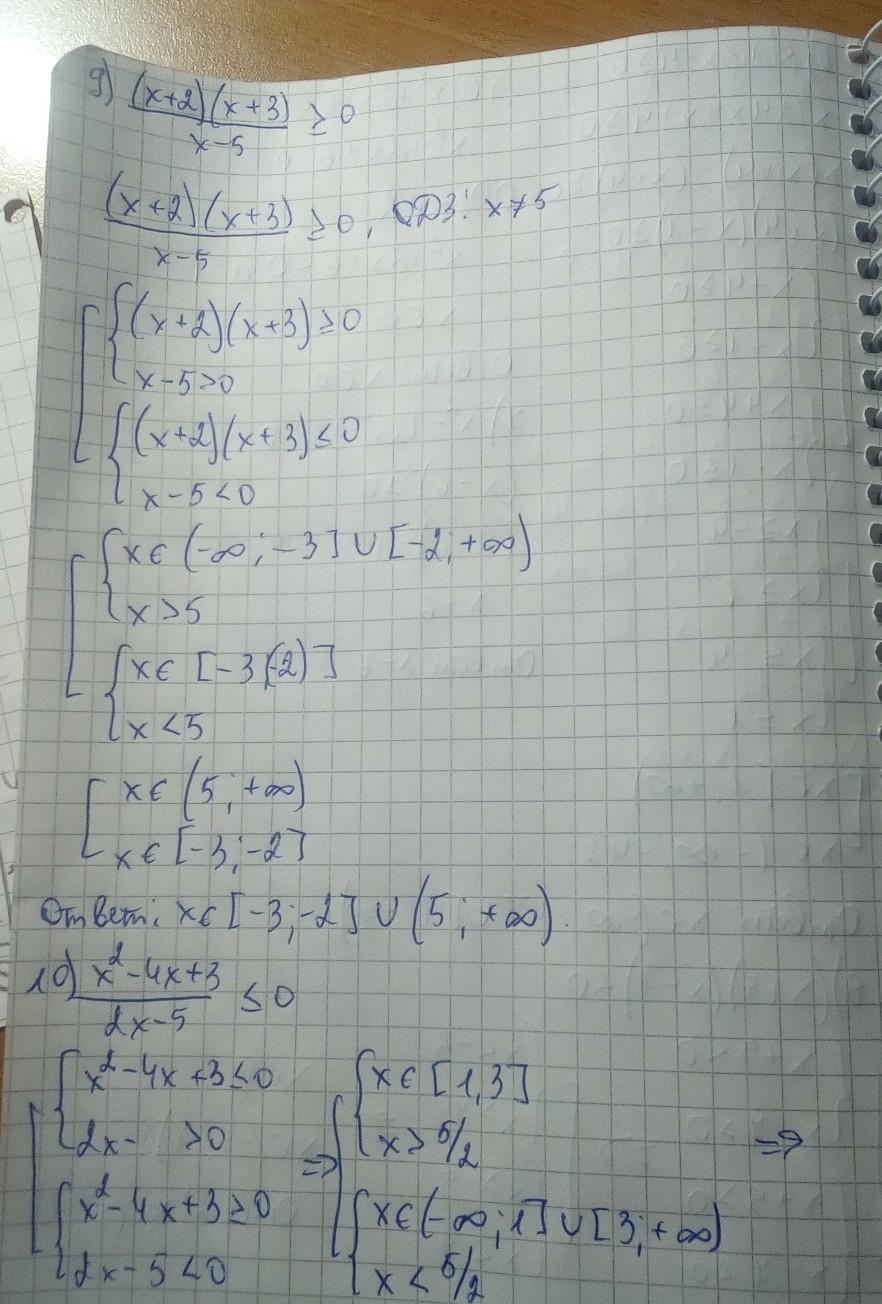 9) (x+2)(x+3)/x-5 ≥ 0
(x+2)(x+3)/x-5 ≥ 0, ОДЗ: x≠5
[ { (x+2)(x+3)≥0
x-5>0
{ (x+2)(x+3)≤0
x-5<0
[ { x∈(-∞;-3]∪[-2;+∞)
x>5
{ x∈[-3(-2)]
x<5
[ x∈(5;+∞)
x∈[-3;-2]
Ответ: x∈[-3;-2]∪(5;+∞).
10) x²-4x+3/2x-5 ≤ 0
[ { x²-4x+3≤0
2x- >0
{ x²-4x+3≥0
2x-5<0
⇒ [ { x∈[1,3]
x>5/2
{ x∈(-∞;1]∪[3;+∞)
x<5/2
⇒